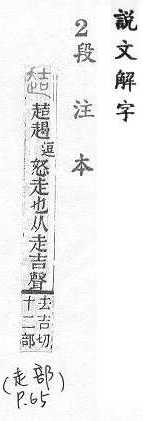 說文解字
2段注本
趌 趌 逗 怒走也从走吉聲
去吉切
十二部
(走部)
P.65